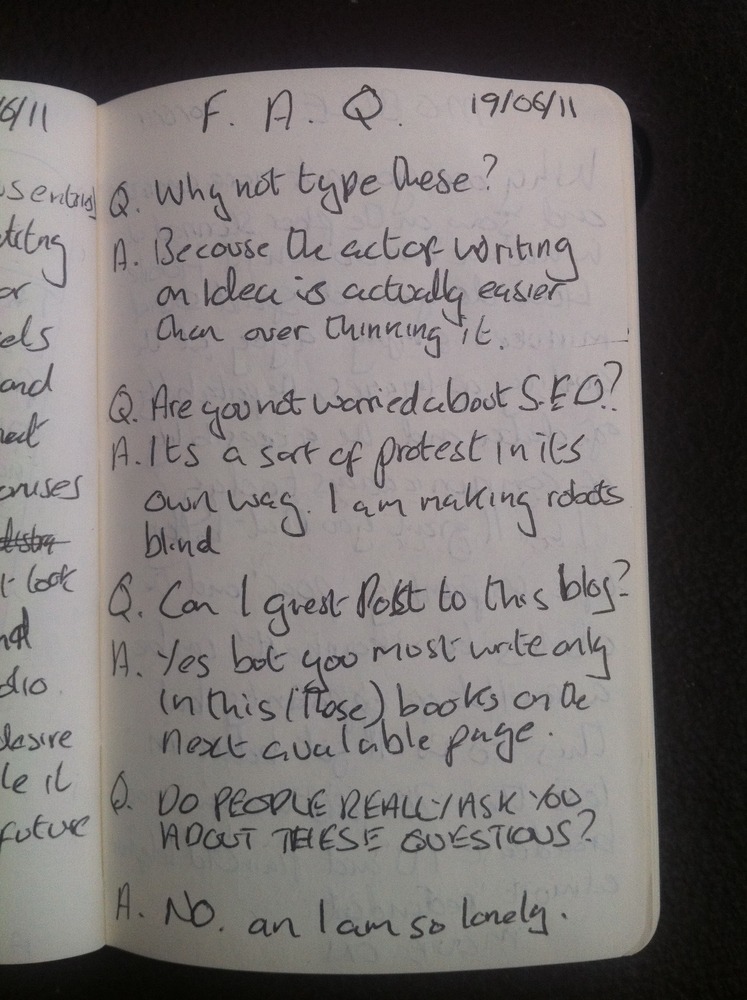 6/11
usentirs
tating
or
els
and
nect
oruses
t look
nd
dio
desire
le it
future
F. A. Q. 19/06/11
Q. Why not type these?
A. Because the act of writing
an Idea is actually easier
than over thinking it.
Q. Are you not worried about S.E.O?
A. Its a sort of protest in its
own way. I am making robots
blind
Q. Can I guest Post to this blog?
A. Yes but you must write only
in this (those) books on the
next available page.
Q. DO PEOPLE REALLY ASK YOU
ABOUT THESE QUESTIONS?
A. NO. an I am so lonely.